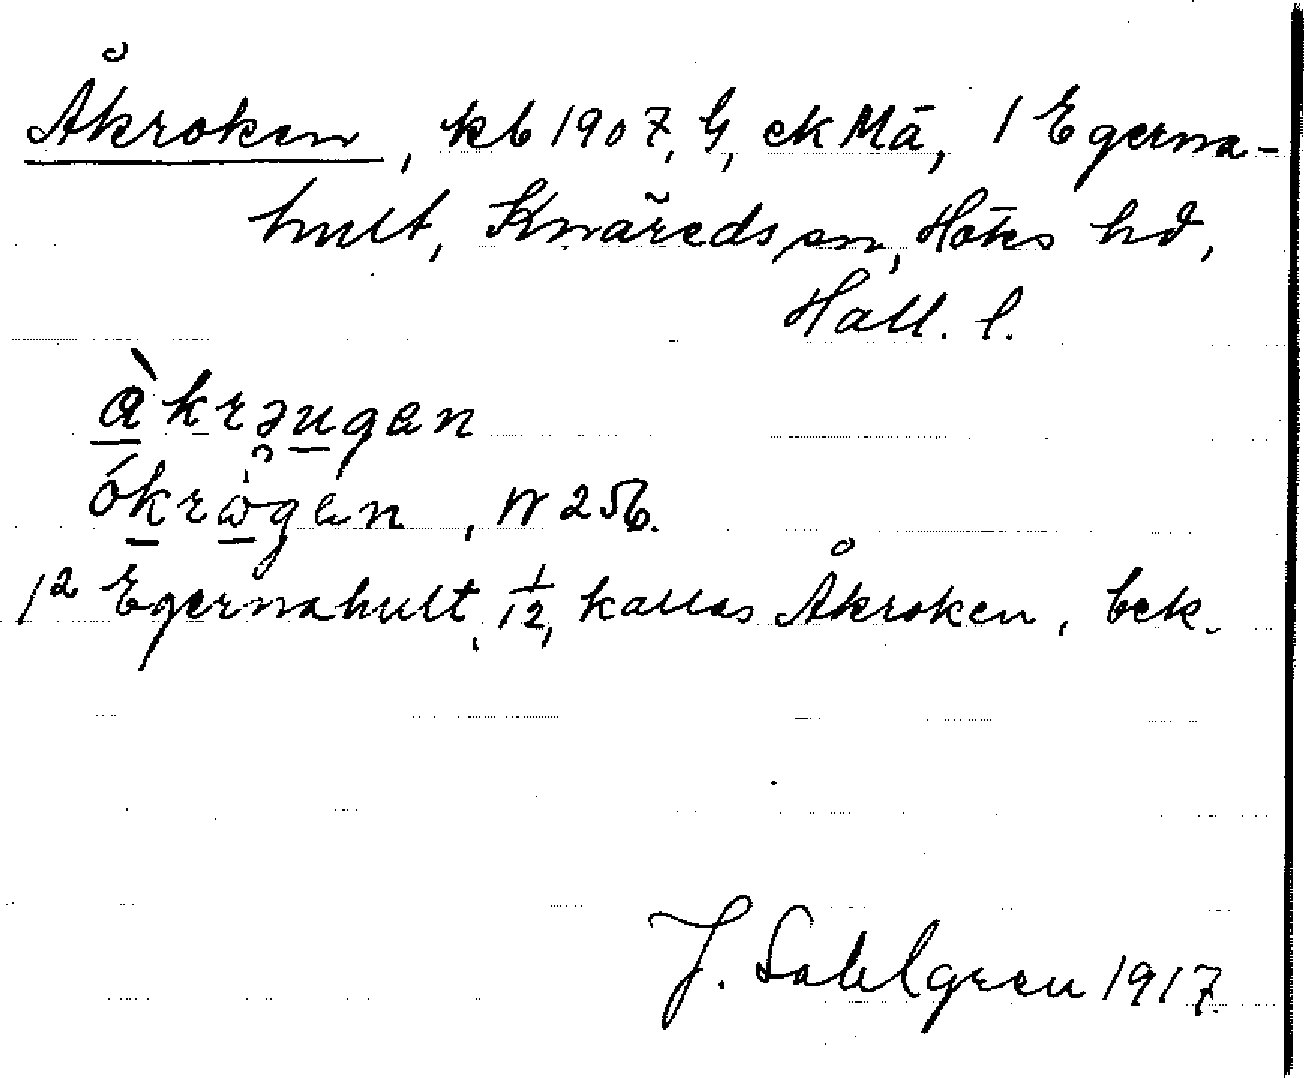 Åkroken, kb 1907, G, ek Mā, 1 Egerna-
hult, Knäreds sn, Höks hd,
Hall. l.
àkrəugen
ókrògen, W 256.
1² Egernahult, 1/12, kallas Åkroken, bek.
J. Sahlgren 1917